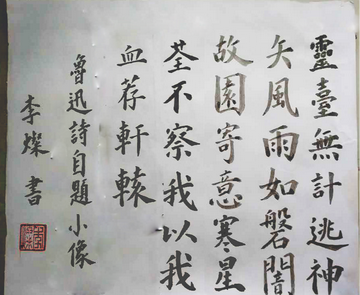 靈臺無計逃神
矢風雨如磐闇
故園寄意寒星
荃不察我以我
血荐軒轅
魯迅詩自題小像
李燦書